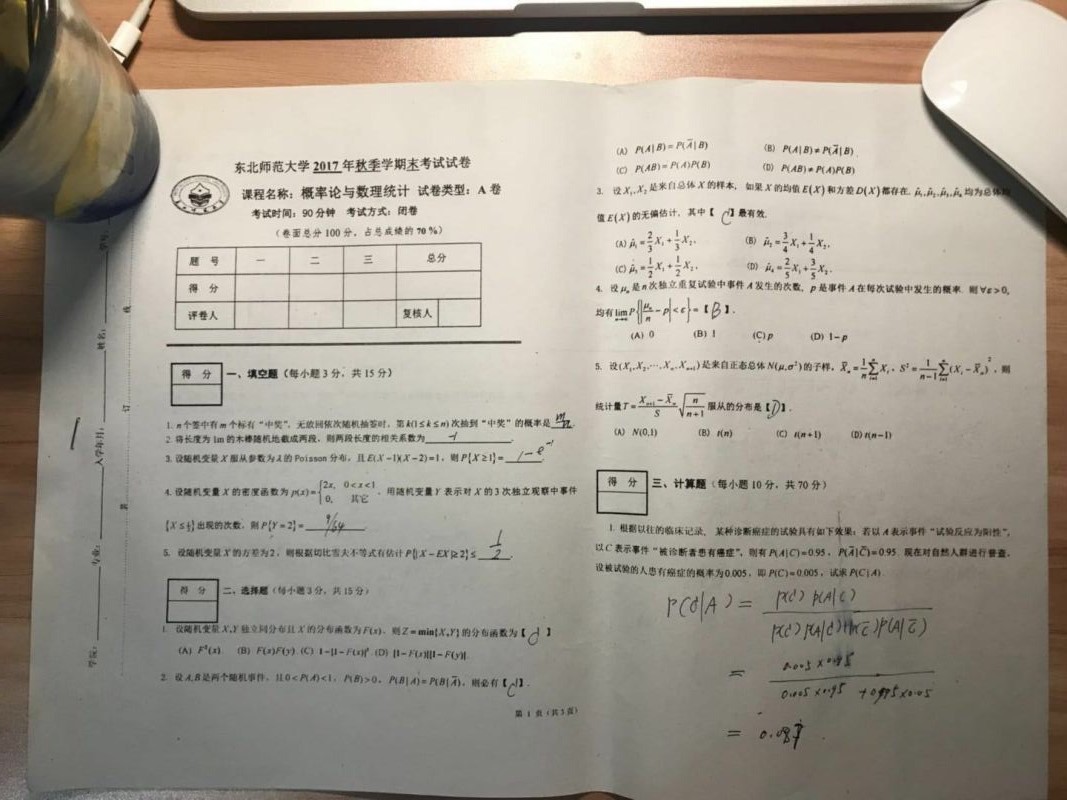 东北师范大学 2017 年秋季学期末考试试卷
课程名称：概率论与数理统计 试卷类型：A 卷
考试时间：90 分钟 考试方式：闭卷
（卷面总分 100 分，占总成绩的 70 %）
题 号 一 二 三 总分
得 分
评卷人 复核人
得 分
一、填空题（每小题 3 分，共 15 分）
1. n个签中有m个标有“中奖”，无放回依次随机抽签时，第k(1≤k≤n)次抽到“中奖”的概率是 m/n
2. 将长度为 1m 的木棒随机地截成两段，则两段长度的相关系数为 -1 .
3. 设随机变量 X 服从参数为 λ 的 Poisson 分布，且 E(X−1)(X−2)=1，则 P{X≥1}= 1-e^-1 .
4. 设随机变量 X 的密度函数为 p(x)={2x, 0<x<1 0, 其它，用随机变量 Y 表示对 X 的 3 次独立观察中事件
{X≤1/2}出现的次数，则 P{Y=2}= 9/64 .
5. 设随机变量 X 的方差为 2，则根据切比雪夫不等式有估计 P{|X−EX|≥2}≤ 1/2 .
得 分
二、选择题（每小题 3 分，共 15 分）
1. 设随机变量 X,Y 独立同分布且 X 的分布函数为 F(x)，则 Z=min{X,Y} 的分布函数为【 C 】
(A) F²(x). (B) F(x)F(y). (C) 1−[1−F(x)]². (D) [1−F(x)][1−F(y)].
2. 设 A,B 是两个随机事件，且 0<P(A)<1，P(B)>0，P(B|A)=P(B|Ā)，则必有【 C 】.
第 1 页（共 3 页）
(A) P(A|B)=P(Ā|B) (B) P(A|B)≠P(Ā|B)
(C) P(AB)=P(A)P(B) (D) P(AB)≠P(A)P(B)
3. 设 X₁,X₂ 是来自总体 X 的样本，如果 X 的均值 E(X) 和方差 D(X) 都存在，μ̂₁,μ̂₂,μ̂₃,μ̂₄ 均为总体均
值 E(X) 的无偏估计，其中【 C 】最有效.
(A) μ̂₁=2/3X₁+1/3X₂. (B) μ̂₂=3/4X₁+1/4X₂.
(C) μ̂₃=1/2X₁+1/2X₂. (D) μ̂₄=2/5X₁+3/5X₂.
4. 设 μₙ 是 n 次独立重复试验中事件 A 发生的次数，p 是事件 A 在每次试验中发生的概率，则 ∀ε>0,
均有 lim n→∞ P{|μₙ/n−p|<ε}=【 B 】.
(A) 0 (B) 1 (C) p (D) 1−p
5. 设(X₁,X₂,⋯,Xₙ,Xₙ₊₁)是来自正态总体 N(μ,σ²) 的子样，X̄ₙ=1/n∑Xᵢ，S²=1/(n−1)∑(Xᵢ−X̄ₙ)²，则
统计量 T=(Xₙ₊₁−X̄ₙ)/S √(n/(n+1)) 服从的分布是【 D 】.
(A) N(0,1) (B) t(n) (C) t(n+1) (D) t(n−1)
得 分
三、计算题（每小题 10 分，共 70 分）
1. 根据以往的临床记录，某种诊断癌症的试验具有如下效果：若以 A 表示事件“试验反应为阳性”，
以 C 表示事件“被诊断者患有癌症”，则有 P(A|C)=0.95，P(Ā|C̄)=0.95. 现在对自然人群进行普查，
设被试验的人患有癌症的概率为 0.005，即 P(C)=0.005，试求 P(C|A).
P(C|A) = P(C)P(A|C) / P(C)P(A|C)+P(C̄)P(A|C̄)
= 0.005×0.95 / 0.005×0.95 +0.995×0.05
= 0.087
学院：
专业：
入学年月：
姓名：
学号：
装
订
线
1